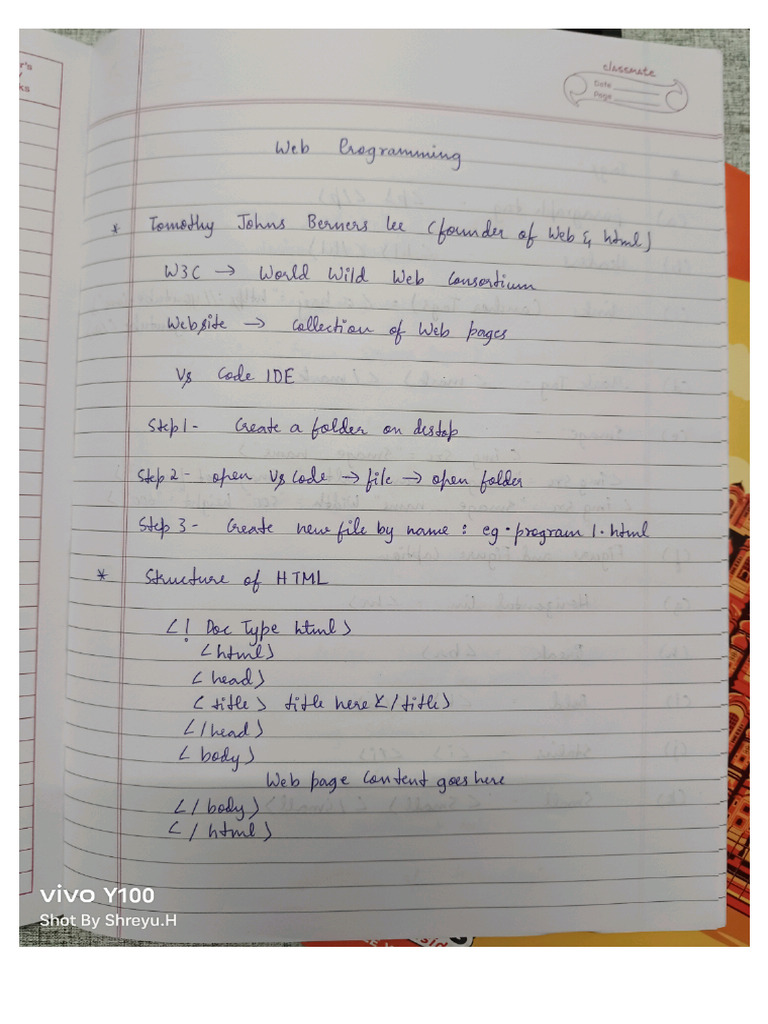 classmate
Date
Page
Web Programming
* Tomothy Johns Berners lee (founder of Web & html)
W3C → World Wild Web Consortium
Website → Collection of Web pages
Vs Code IDE
Step 1 - Create a folder on destop
Step 2 - open Vs Code → file → open folder
Step 3 - Create new file by name : eg. program 1. html
* Structure of HTML
<! Doc Type html>
<html>
<head>
<title> title here </title>
</head>
<body>
Web page Content goes here
</body>
</html>
vivo Y100
Shot By Shreyu.H